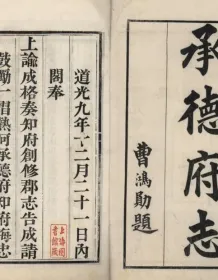 承德府志
曹鴻勛題
道光九年十二月二十一日內
閣奉
上諭成格奏知府創修郡志告成請
鼓勵一摺熱河承德府知府海忠